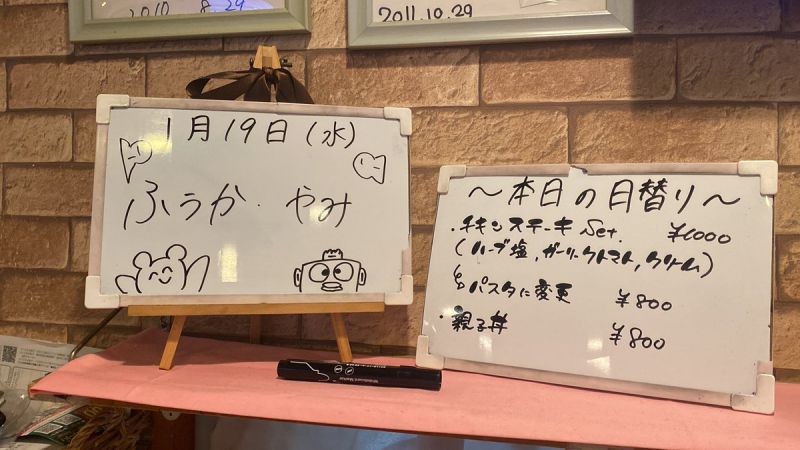 2010 8.29
2011.10.29
1月19日(水)
ふうか. やみ
~本日の日替り~
・チキンステーキ Set. ¥1000
(ハーブ塩,ガーリックトマト,クリーム)
パスタに変更 ¥800
・親子丼 ¥800
Whiteboard Marker